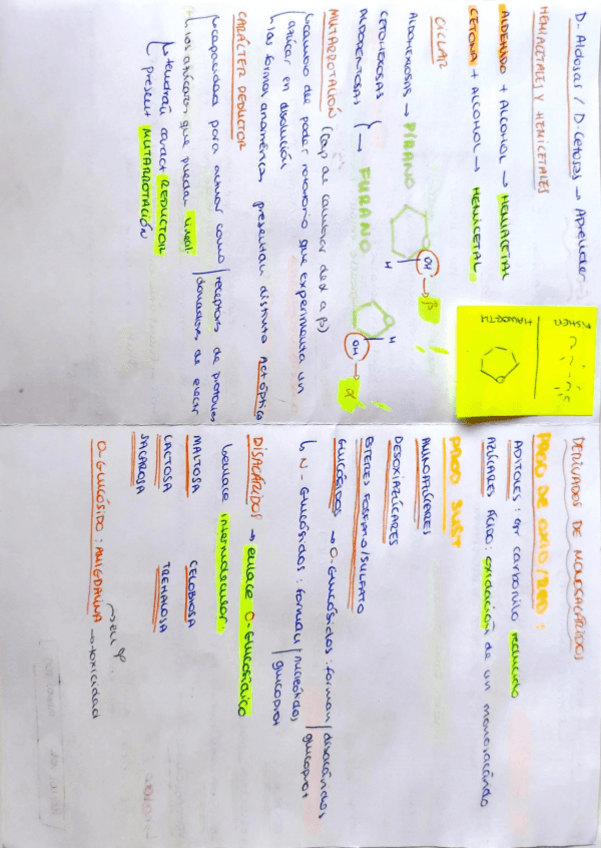 D-Aldosas / D-Cetosas → Aprender
HEMIACETALES Y HEMICETALES
ALDEHIDO + ALCOHOL → HEMIACETAL
CETONA + ALCOHOL → HEMICETAL
FISHER
HAWORTH
CICLAR
ALDOHEXOSAS → PIRANO
OH → β
H
CETOHEXOSAS
ALDOPENTOSAS
→ FURANO
H
OH → α
MUTARROTACIÓN (cap de cambiar de α a β)
↳ cambio de poder rotatorio que experimenta un
azúcar en disolución
↳ las formas anoméricas presentan distinta Act óptica
CARÁCTER REDUCTOR
↳ capacidad para actuar como / receptores de protones
donadores de electr
↳ los azúcares que puedan lineal.
↳ tendrán caract REDUCTOR
present MUTARROTACIÓN
DERIVADOS DE MONOSACÁRIDOS
PROD DE OXID/RED:
ADITOLES: gr carbonilo reducido
AZÚCARES ÁCIDO: oxidación de un monosacárido
PROD SUST
AMINOAZÚCARES
DESOXIAZÚCARES
ESTERES FOSFATO/SULFATO
GLUCÓSIDOS → O-Glucósidos: forman / disacáridos
glucoprot
↳ N-Glucósidos: forman / nucleótidos
glucoprot
DISACÁRIDOS → enlace O-Glucosídico
↳ enlace intermolecular
MALTOSA CELOBIOSA
LACTOSA TREHALOSA
SACAROSA
O-GLUCÓSIDO: AMIGDALINA → toxicidad